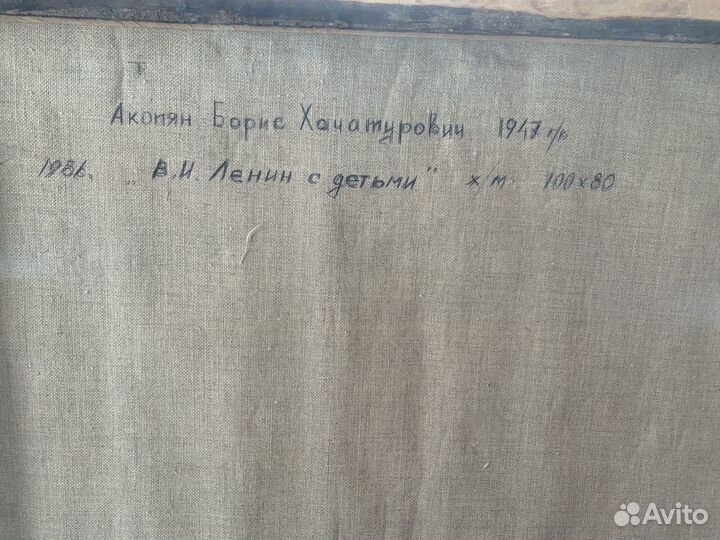 Акопян Борис Хачатурович 1947 г/р
1986г. "В.И. Ленин с детьми" х/м 100х80
Avito